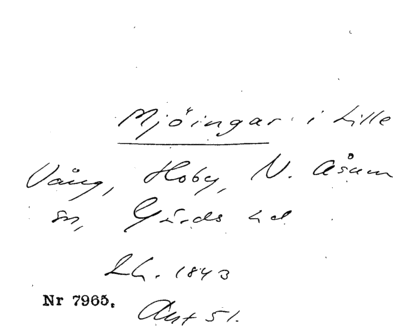 Mjöingar i Lille
Vång, Hoby, N. Åsum
sn, Gärds hd
Lh. 1843
Nr 7965.
Ant 51.